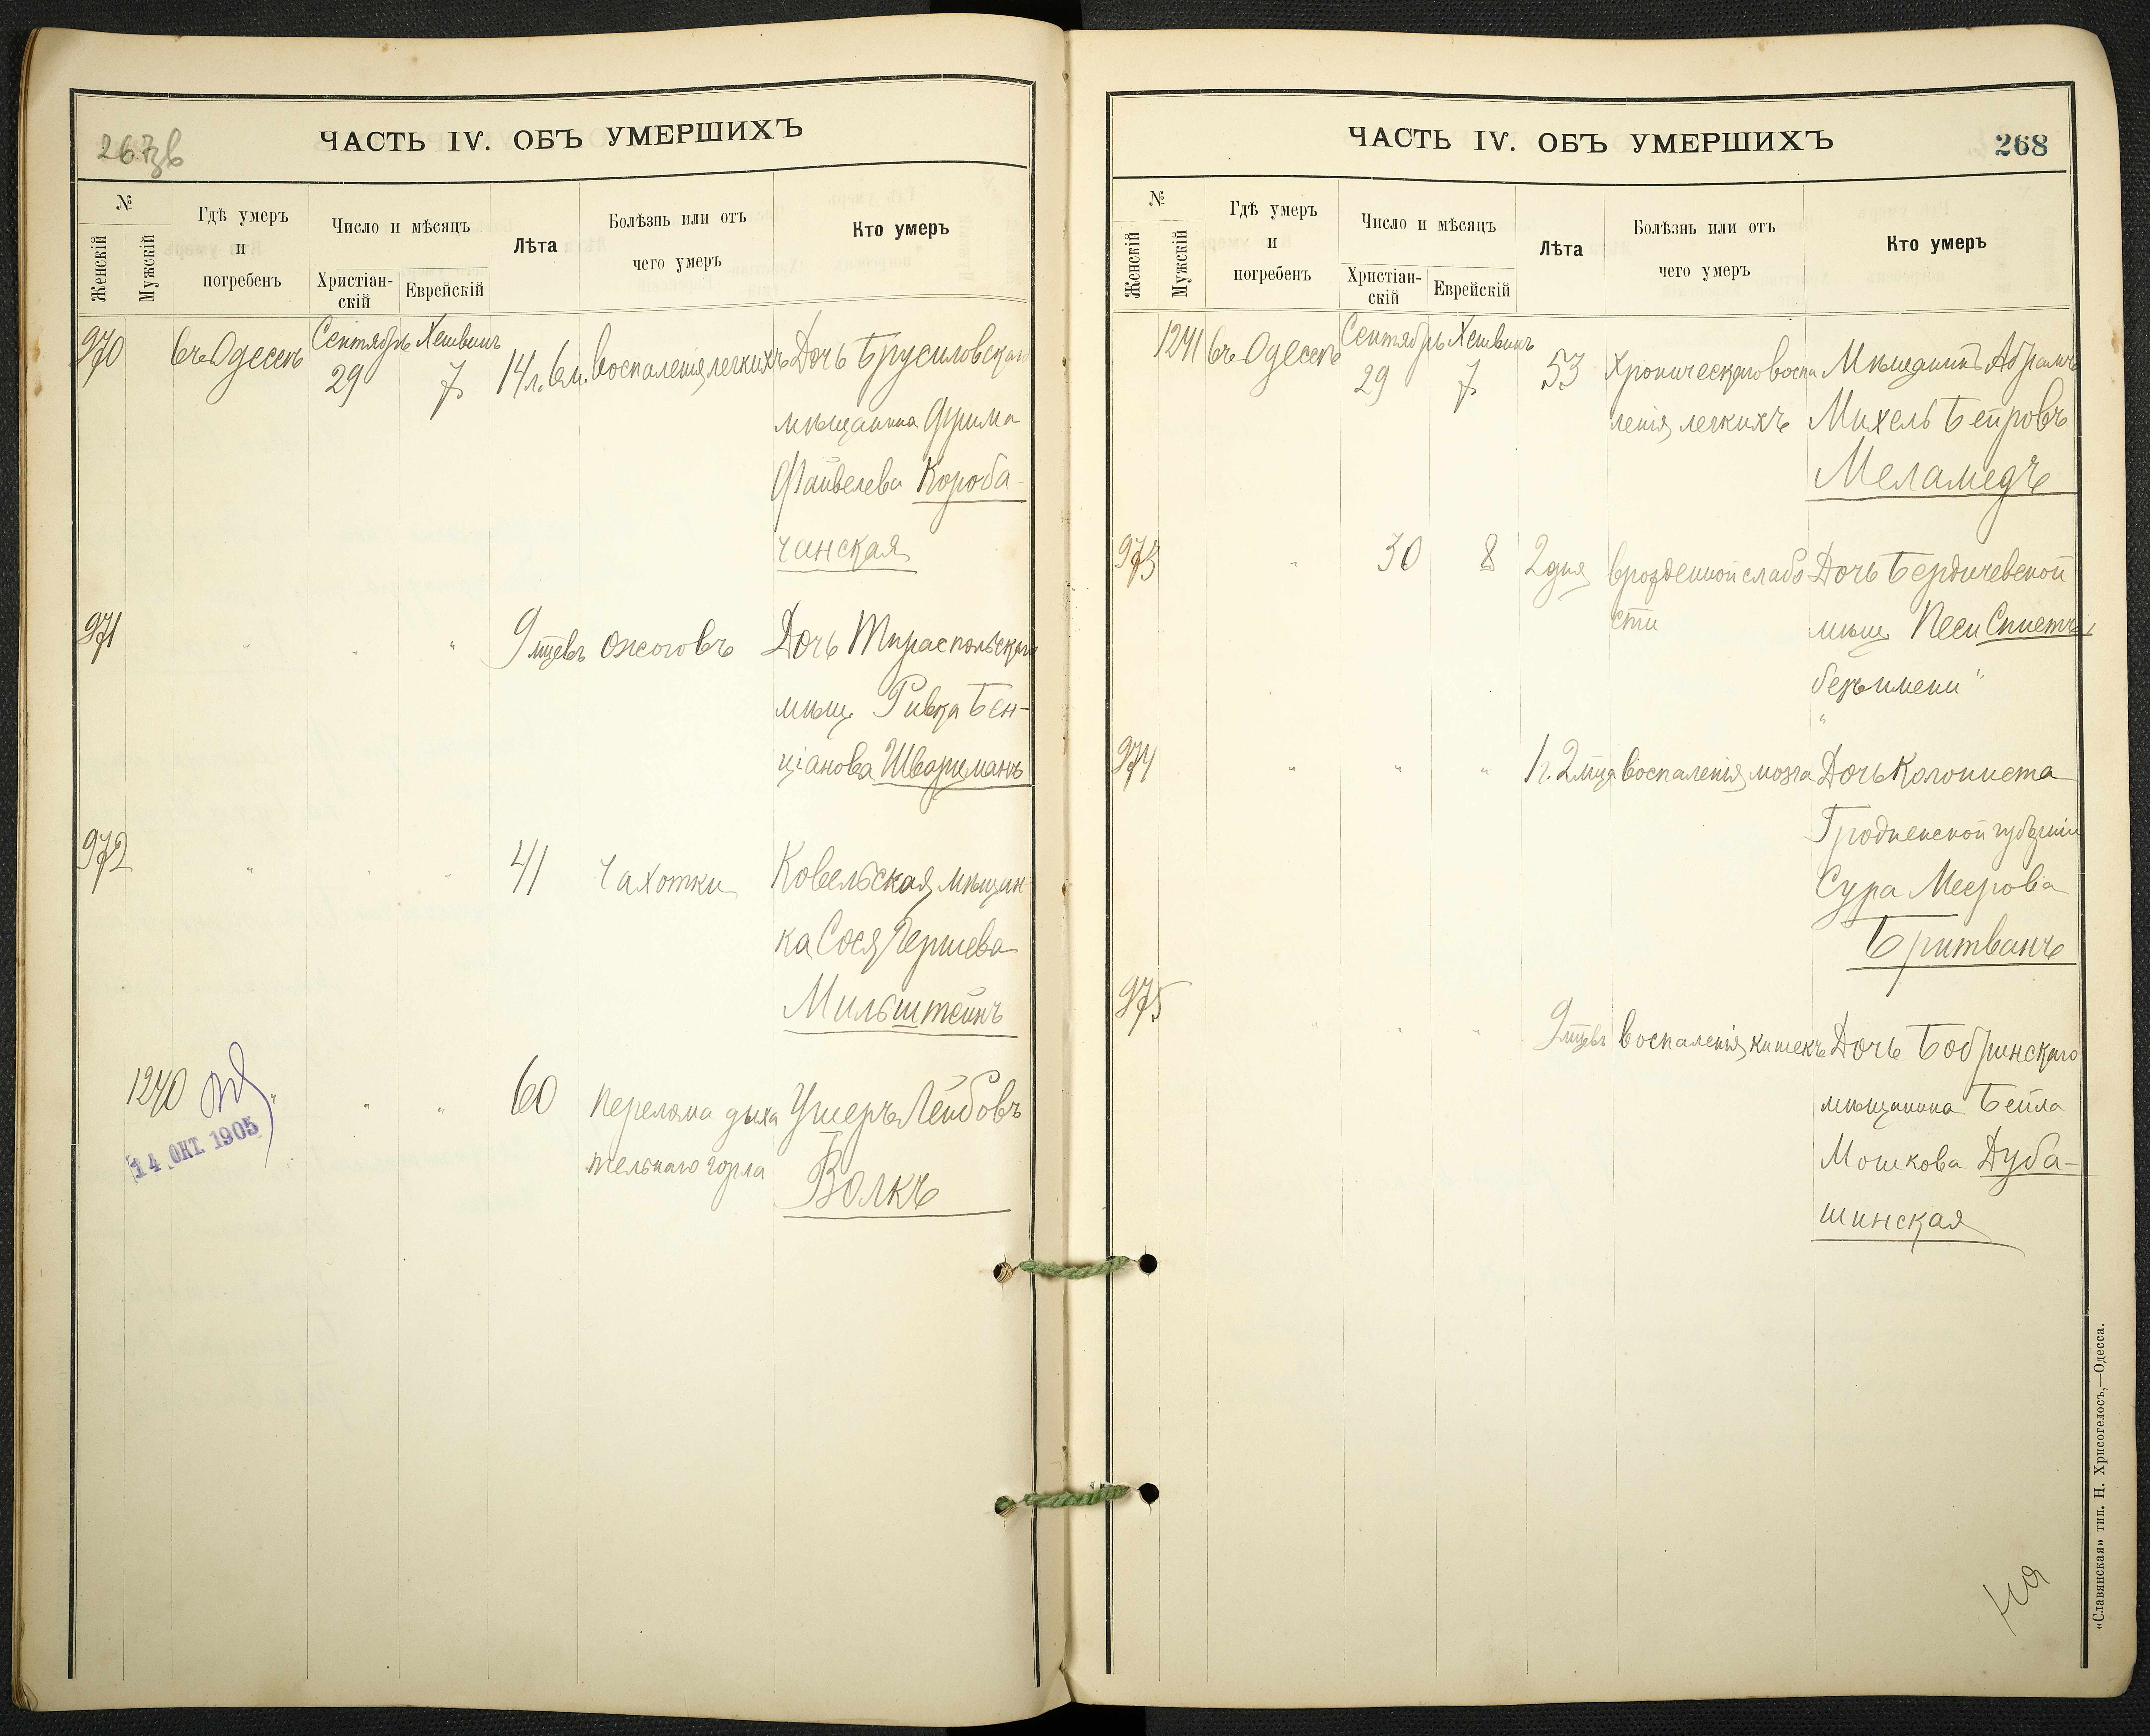 267 зв
ЧАСТЬ IV. ОБЪ УМЕРШИХЪ
№
Женскій
Мужскій
Гдѣ умеръ
и
погребенъ
Число и мѣсяцъ
Христіан-
скій
Еврейскій
Лѣта
Болѣзнь или отъ
чего умеръ
Кто умеръ
970 въ Одессѣ Сентябрь 29 Хешвинъ 7 14 л. 6 м. воспаленія легкихъ Дочь Брусиловскаго
мѣщанина Фрима
Файвелева Короба-
чанская
971 " " " 9 мцевъ ожоговъ Дочь Тираспольскаго
мѣщ. Ривка Бен-
ціанова Шварцманъ
972 " " " 41 Чахотки Ковельская мѣщан
ка Сося Гершева
Мильштейнъ
1240 " " " 60 перелома дыха Ушеръ Лейбовъ
тельнаго горла Волкъ
14 ОКТ. 1905
ЧАСТЬ IV. ОБЪ УМЕРШИХЪ
268
№
Женскій
Мужскій
Гдѣ умеръ
и
погребенъ
Число и мѣсяцъ
Христіан-
скій
Еврейскій
Лѣта
Болѣзнь или отъ
чего умеръ
Кто умеръ
1241 въ Одессѣ Сентябрь 29 Хешвинъ 7 53 Хроническаго воспа Мѣщанинъ Абрамъ
ленія легкихъ Михель Бейровъ
Меламедъ
973 " 30 8 2 дня врожденной слабо Дочь Бердичевской
сти мѣщ. Песи
безъ имени "
"
974 " " " 1 г. 2 мца воспаленія мозга Дочь Колониста
Гродненской губерніи
Сура Меерова
Бритванъ
975 " " " 9 мцевъ воспаленія кишекъ Дочь Бобринскаго
мѣщанина Бейла
Мошкова Дуба-
шинская
«Славянская» тип. Н. Хрисогелосъ,—Одесса.